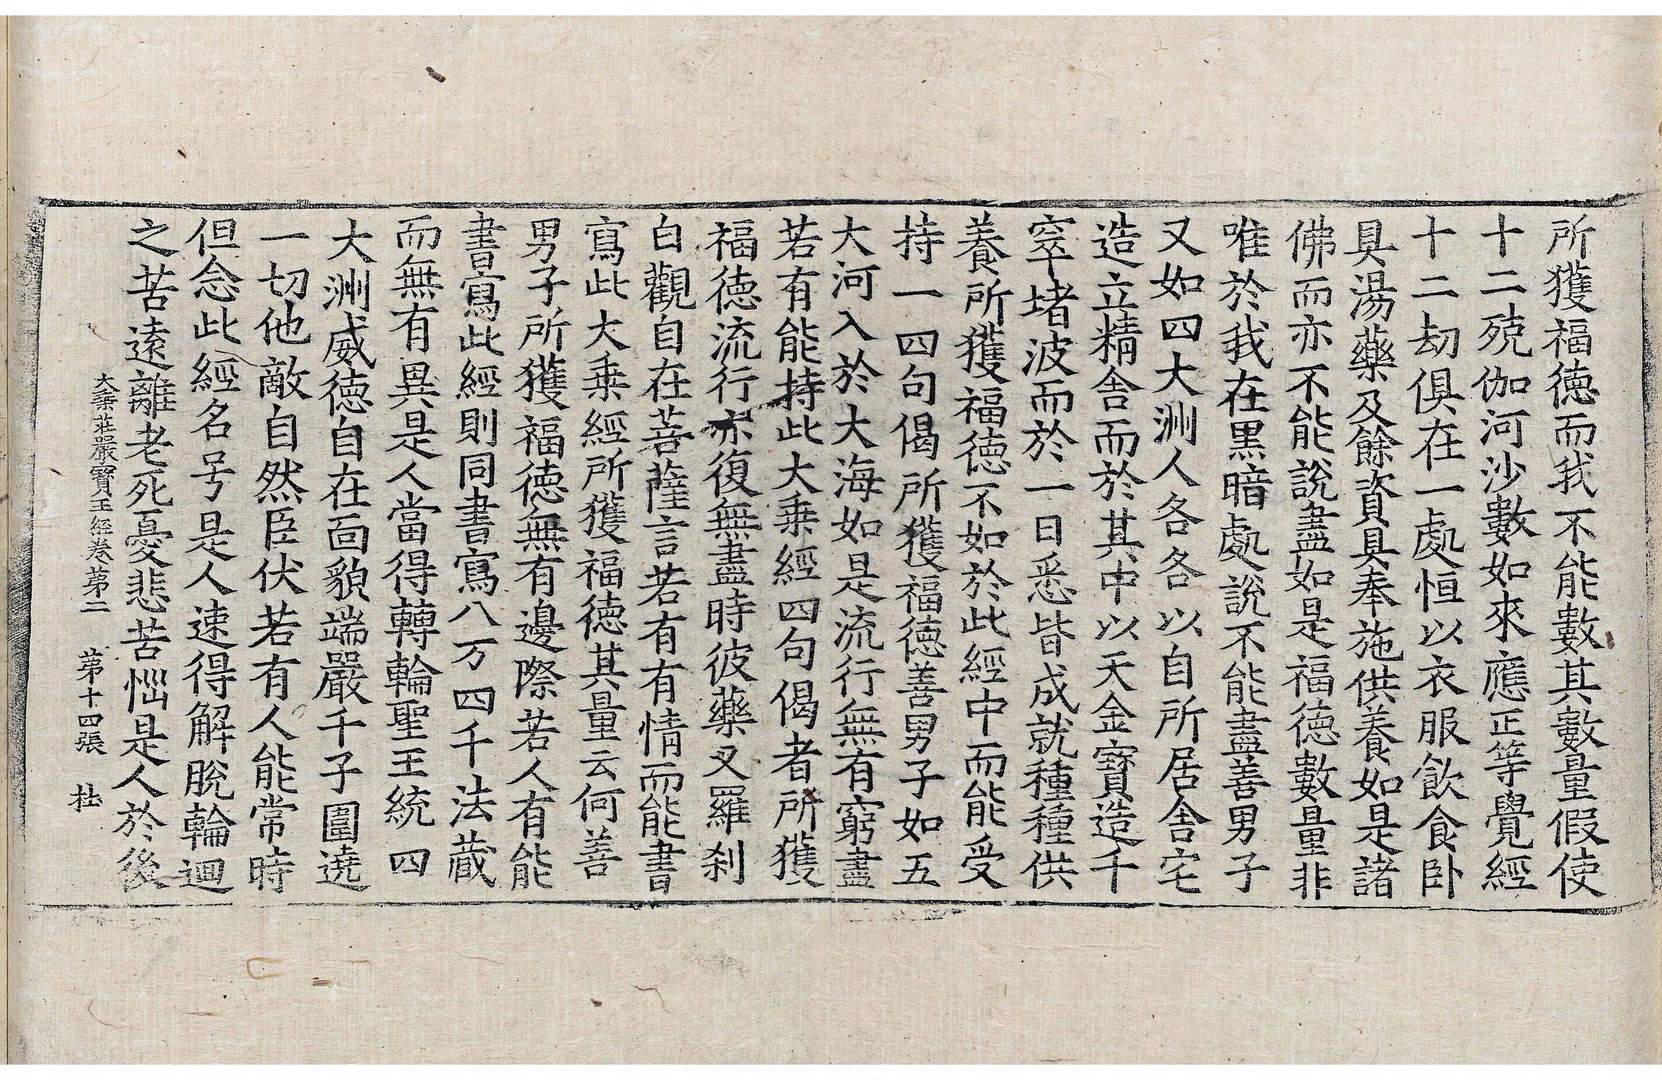 所獲福德而我不能數其數量假使
十二殑伽河沙數如來應正等覺經
十二劫俱在一處恒以衣服飲食卧
具湯藥及餘資具奉施供養如是諸
佛而亦不能說盡如是福德數量非
唯於我在黑暗處說不能盡善男子
又如四大洲人各各以自所居舍宅
造立精舍而於其中以天金寶造千
窣堵波而於一日悉皆成就種種供
養所獲福德不如於此經中而能受
持一四句偈所獲福德善男子如五
大河入於大海如是流行無有窮盡
若有能持此大乗經四句偈者所獲
福德流行亦復無盡時彼藥叉羅刹
白觀自在菩薩言若有有情而能書
寫此大乗經所獲福德其量云何善
男子所獲福德無有邊際若人有能
書寫此經則同書寫八万四千法藏
而無有異是人當得轉輪聖王統四
大洲威德自在面貌端嚴千子圍遶
一切他敵自然臣伏若有人能常時
但念此經名号是人速得解脫輪迴
之苦遠離老死憂悲苦惱是人於後
大乗莊嚴寶王經卷苐二 苐十四張